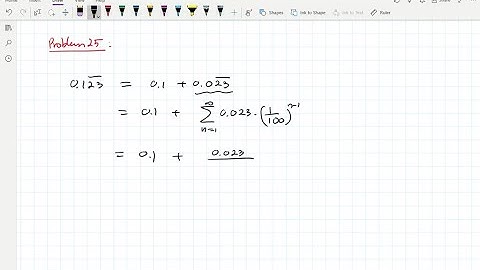 Shapes Ink to Shape Ink to Math Ruler
Problem 25 :
0.1\overline{23} = 0.1 + 0.0\overline{23}
= 0.1 + \sum_{n=1}^{\infty} 0.023 \cdot \left(\frac{1}{100}\right)^{n-1}
= 0.1 + 0.023